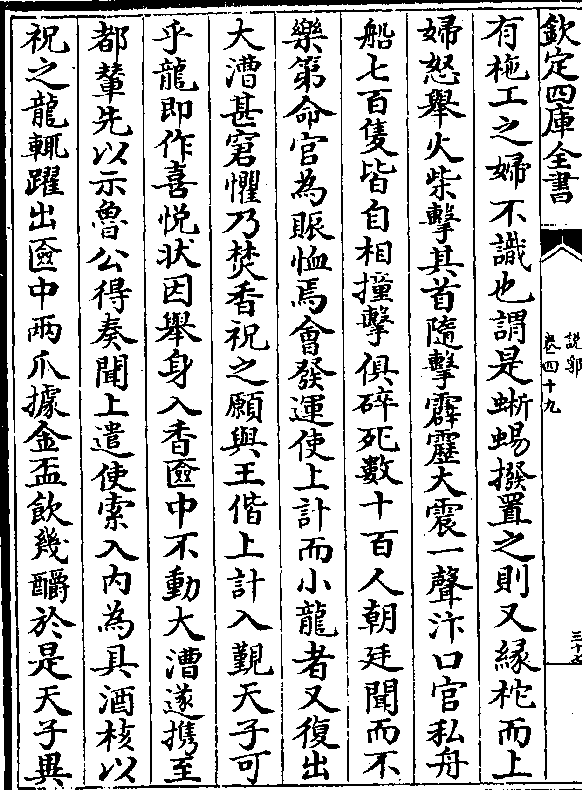 欽定四庫全書
說郛
卷四十九
有柂工之婦不識也謂是蜥蜴撥置之則又緣柁而上
婦怒舉火柴擊其首隨擊霹靂大震一聲汴口官私舟
船七百隻皆自相撞擊俱碎死數十百人朝廷聞而不
樂第命官為賑恤焉會發運使上計而小龍者又復出
大漕甚窘懼乃焚香祝之願與王偕上計入覲天子可
乎龍即作喜悅狀因舉身入香匳中不動大漕遂攜至
都輦先以示魯公得奏聞上遣使索入內為具酒核以
祝之龍輒躍出匳中兩爪據金盃飲幾釂於是天子異